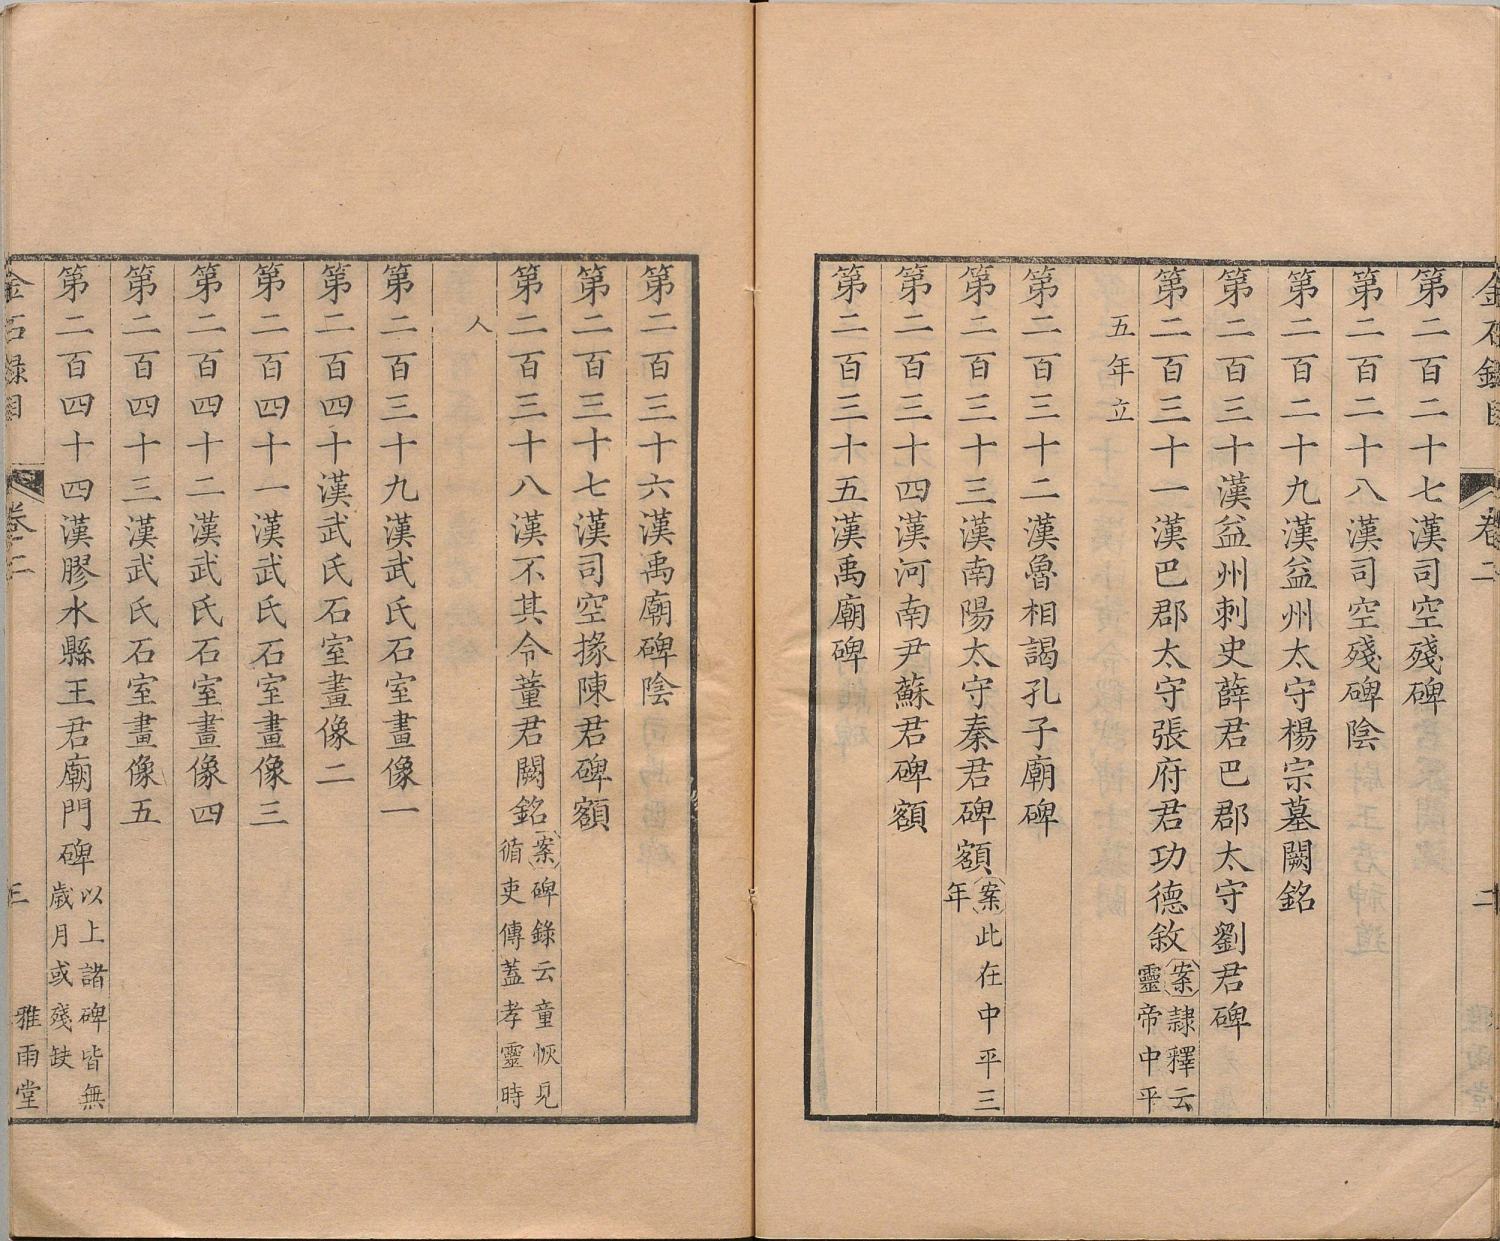 金石録目 卷二 二
第二百二十七漢司空殘碑
第二百二十八漢司空殘碑陰
第二百二十九漢益州太守楊宗墓闕銘
第二百三十漢益州刺史薛君巴郡太守劉君碑
第二百三十一漢巴郡太守張府君功德敘案隸釋云靈帝中平
五年立
第二百三十二漢魯相謁孔子廟碑
第二百三十三漢南陽太守秦君碑額案此在中平三年
第二百三十四漢河南尹蘇君碑額
第二百三十五漢禹廟碑
第二百三十六漢禹廟碑陰
第二百三十七漢司空掾陳君碑額
第二百三十八漢不其令董君闕銘案碑錄云童恢見循吏傳蓋孝靈時
人
第二百三十九漢武氏石室畫像一
第二百四十漢武氏石室畫像二
第二百四十一漢武氏石室畫像三
第二百四十二漢武氏石室畫像四
第二百四十三漢武氏石室畫像五
第二百四十四漢膠水縣王君廟門碑以上諸碑皆無歲月或殘缺
金石録目 卷二 三 雅雨堂